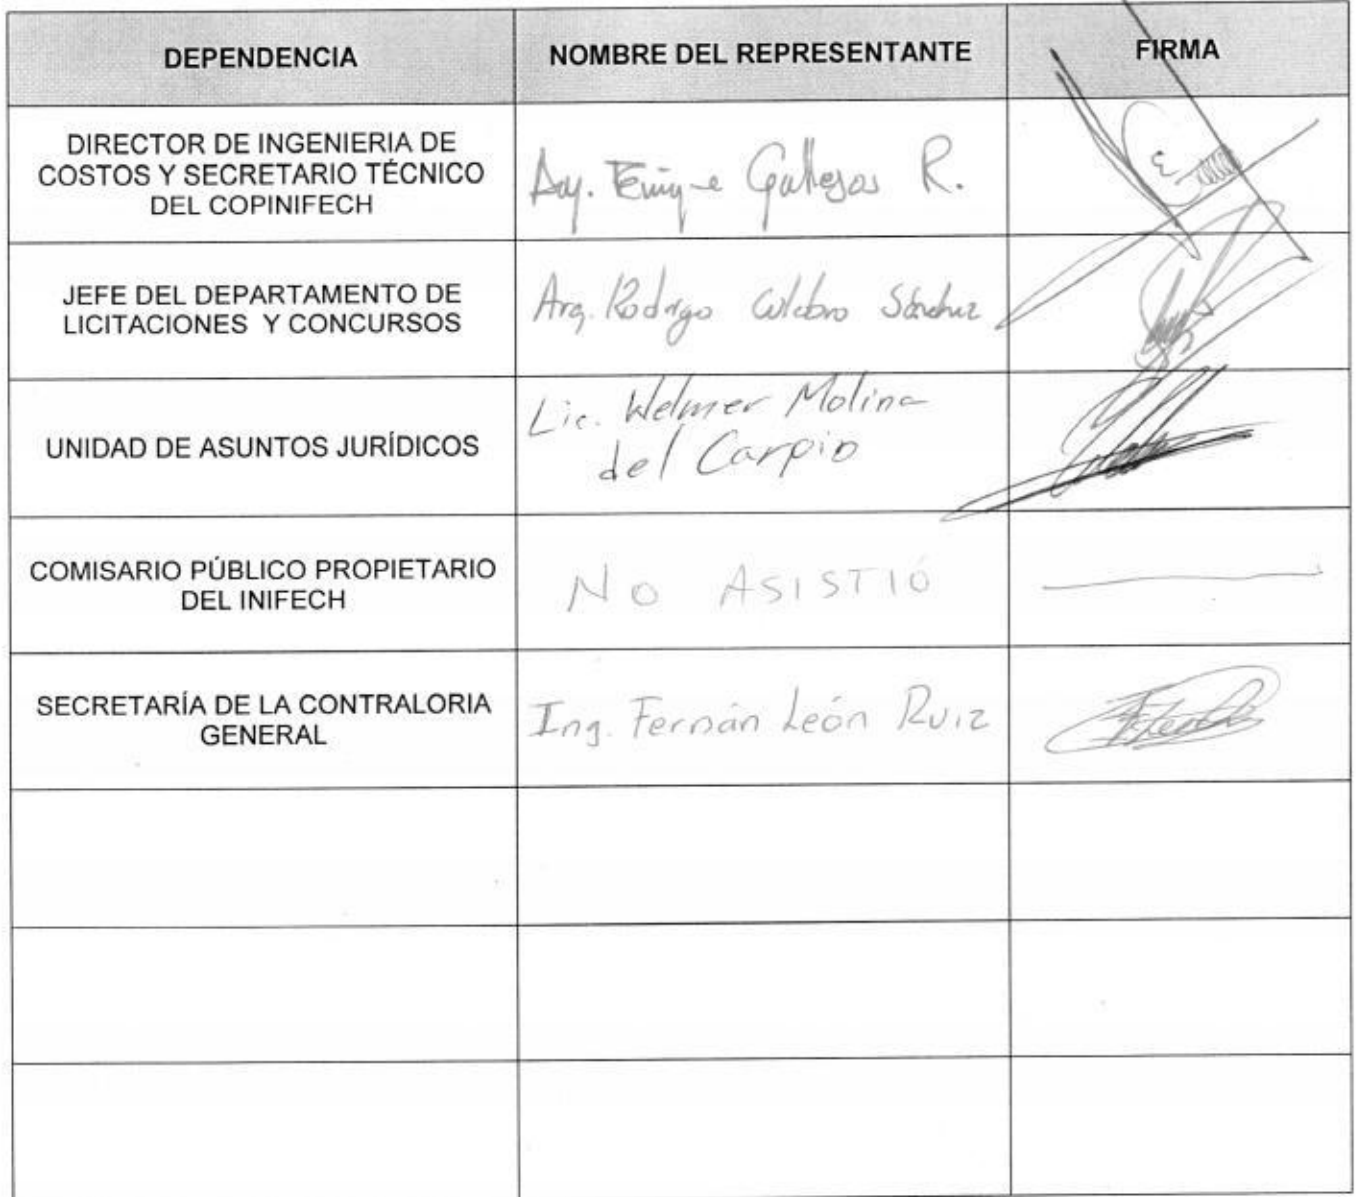 DEPENDENCIA
NOMBRE DEL REPRESENTANTE
FIRMA
DIRECTOR DE INGENIERIA DE
COSTOS Y SECRETARIO TÉCNICO
DEL COPINIFECH
Enrique Gallegos R.
JEFE DEL DEPARTAMENTO DE
LICITACIONES Y CONCURSOS
Arq. Rodrigo Culebro Sánchez
UNIDAD DE ASUNTOS JURÍDICOS
Lic. Welmer Molina
del Carpio
COMISARIO PÚBLICO PROPIETARIO
DEL INIFECH
NO ASISTIÓ
SECRETARÍA DE LA CONTRALORIA
GENERAL
Ing. Fernán León Ruiz